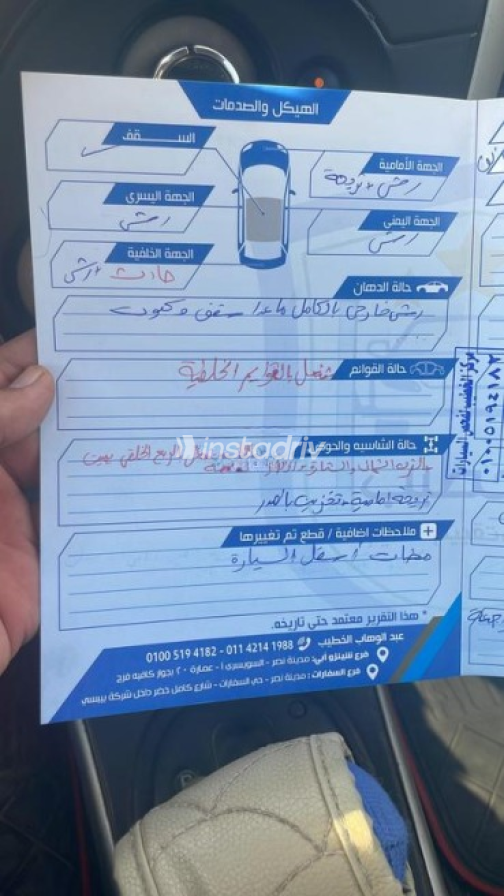 الهيكل والصدمات
السقف
الجهة الأمامية
رش + بروحة
الجهة اليسرى
رش
الجهة اليمنى
رش
الجهة الخلفية
حادث + رش
حالة الدهان
رش خارجي بالكامل ماعدا سقف وكبوت
حالة القوائم
شغل بالقوايم الخلفية
حالة الشاسيه والحوض
instadriv
بالربع الخلفي يمين
أمامية + تخريب بالصدر
ملاحظات اضافية / قطع تم تغييرها
مطبات أسفل السيارة
* هذا التقرير معتمد حتى تاريخه.
عبد الوهاب الخطيب
0100 519 4182 - 011 4214 1988
فرع شينزو آبي: مدينة نصر - السويسري أ - عمارة ٢٠ بجوار كافيه فرح
فرع السفارات : مدينة نصر - حي السفارات - شارع كامل خضر داخل شركة بيبسي
٠١٠٠٥١٩٤١٨٢